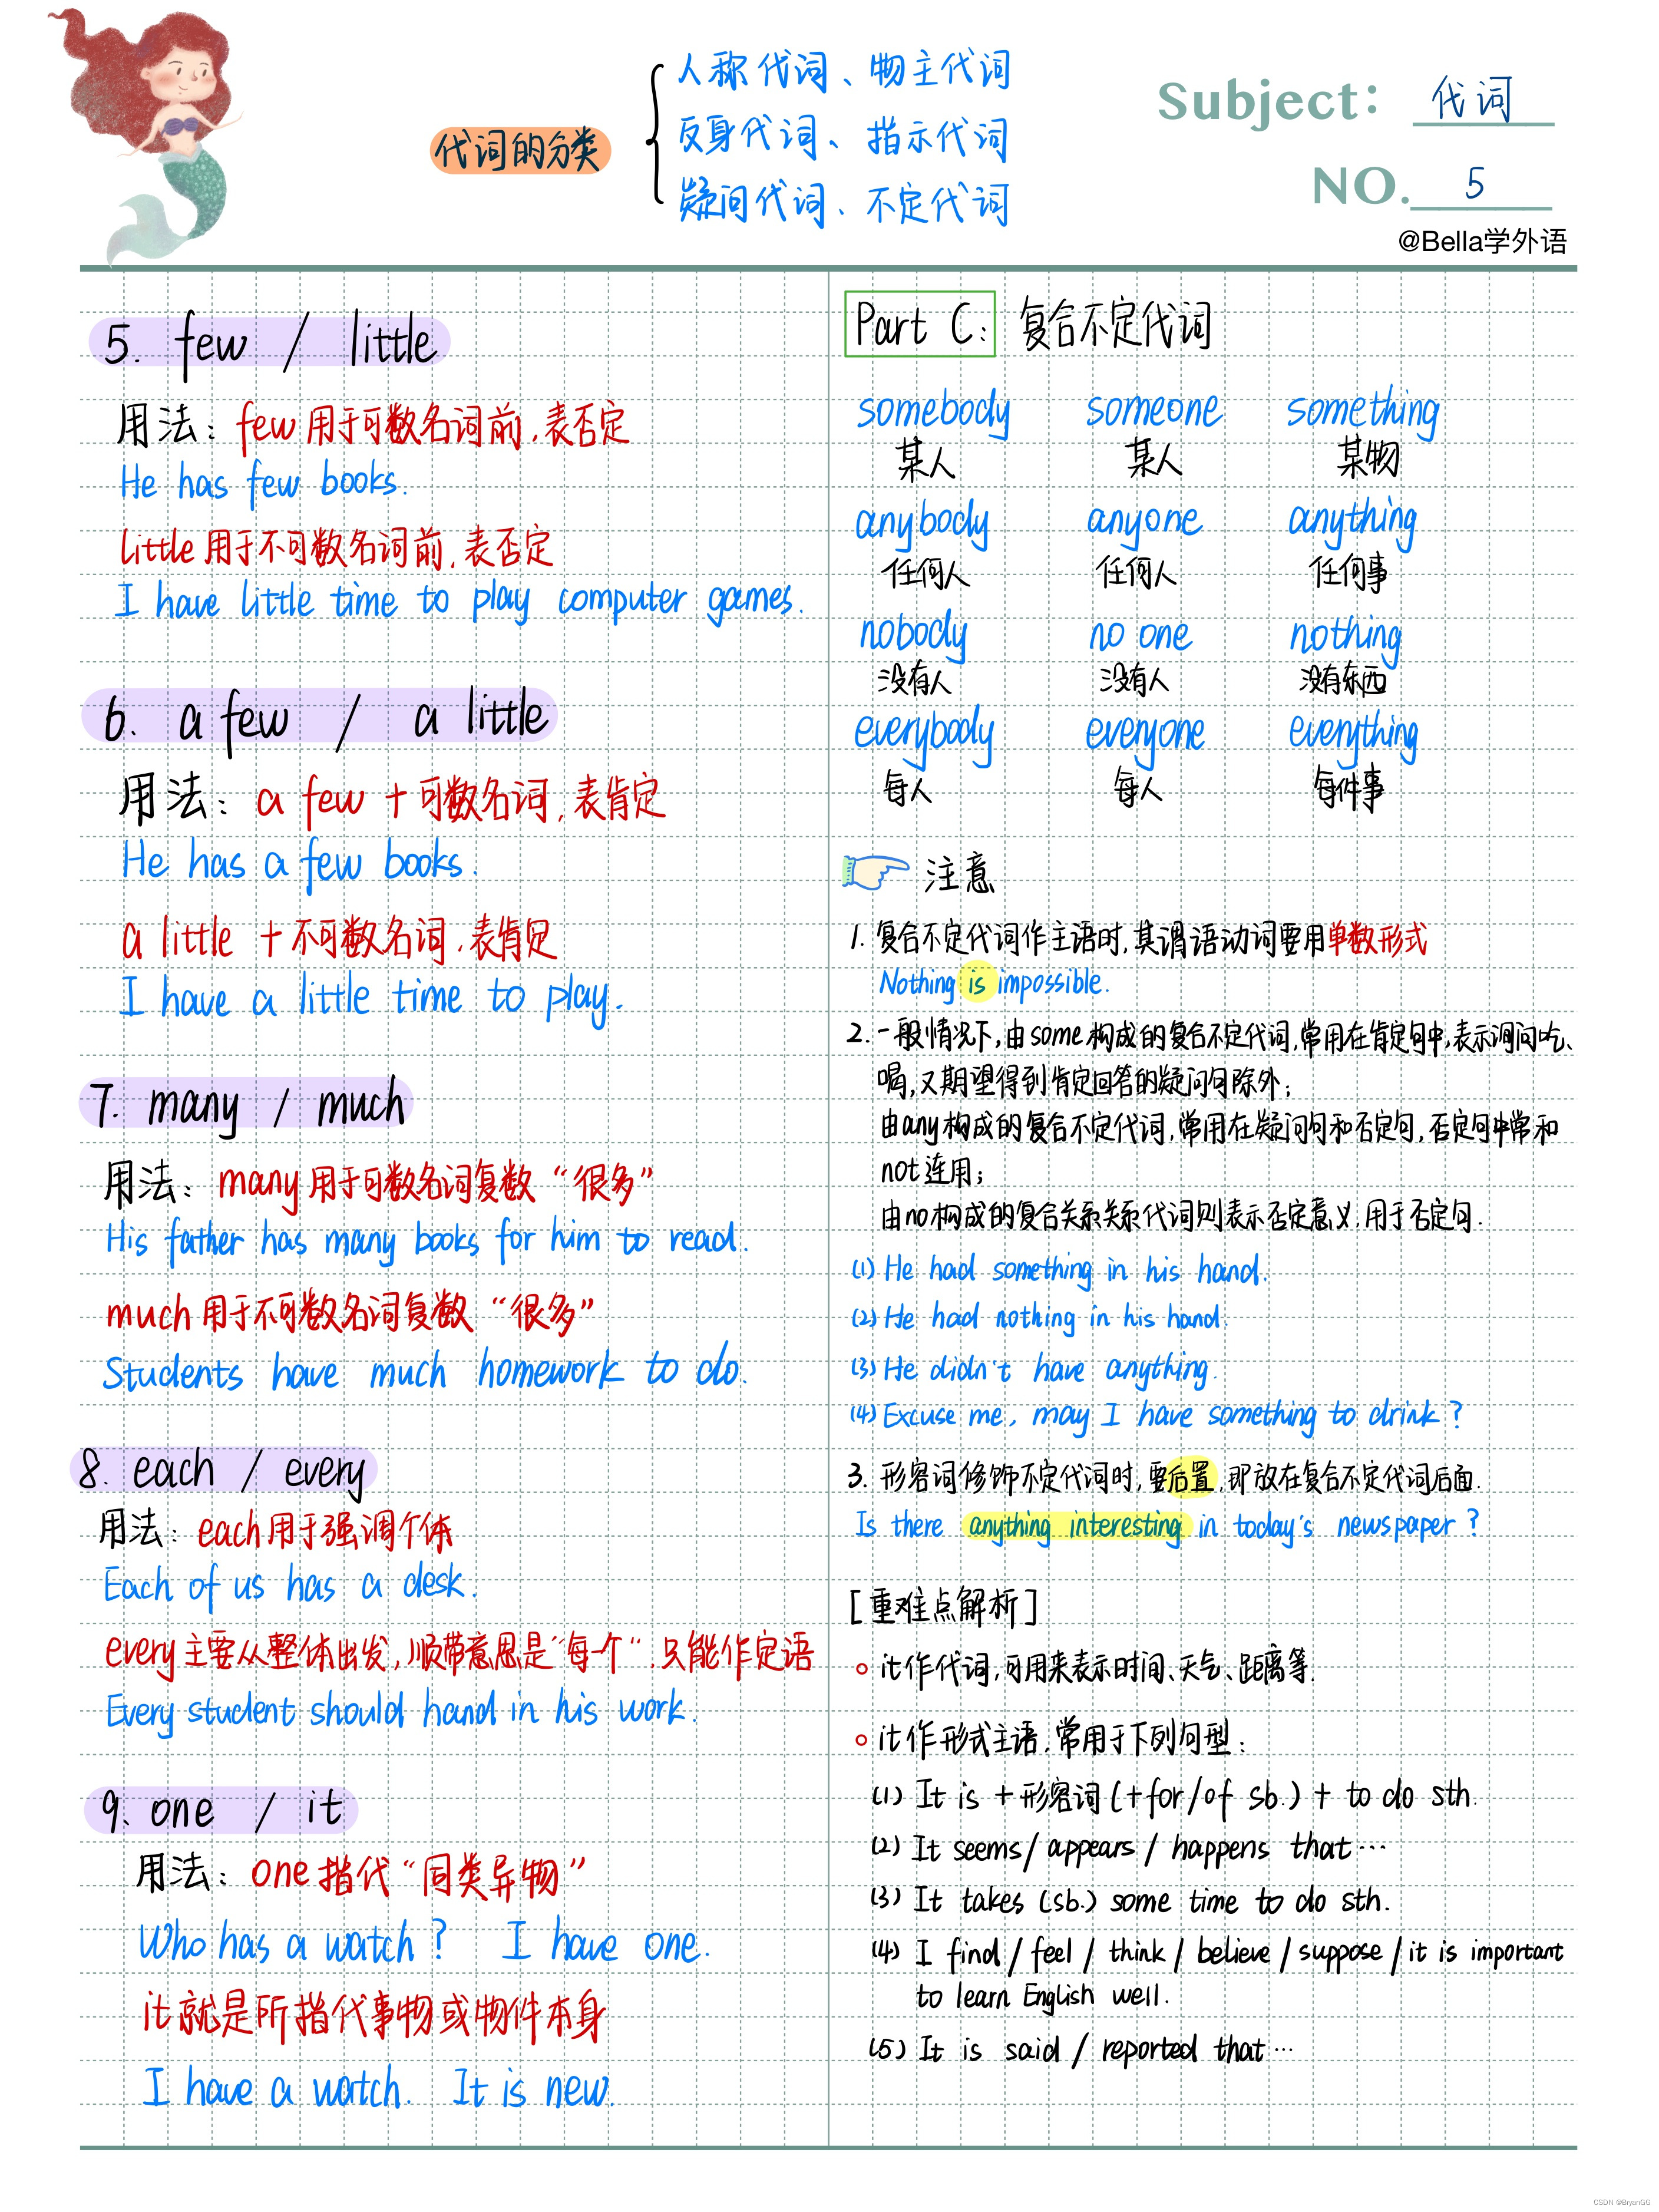 代词的分类
人称代词、物主代词
反身代词、指示代词
疑问代词、不定代词
Subject: 代词
NO. 5
@Bella学外语
5. few / little
用法：few用于可数名词前，表否定
He has few books.
little用于不可数名词前，表否定
I have little time to play computer games.
6. a few / a little
用法：a few + 可数名词，表肯定
He has a few books.
a little + 不可数名词，表肯定
I have a little time to play.
7. many / much
用法：many用于可数名词复数“很多”
His father has many books for him to read.
much用于不可数名词复数“很多”
Students have much homework to do.
8. each / every
用法：each用于强调个体
Each of us has a desk.
every主要从整体出发，顺带意思是“每一个”，只能作定语
Every student should hand in his work.
9. one / it
用法：one指代“同类异物”
Who has a watch? I have one.
it就是所指代事物或物件本身
I have a watch. It is new.
Part C: 复合不定代词
somebody someone something
某人 某人 某物
anybody anyone anything
任何人 任何人 任何事
nobody no one nothing
没有人 没有人 没有东西
everybody everyone everything
每人 每人 每件事
注意
1. 复合不定代词作主语时，其谓语动词要用单数形式
Nothing is impossible.
2. 一般情况下，由some构成的复合不定代词，常用在肯定句中，表示询问吃、
喝，又期望得到肯定回答的疑问句除外；
由any构成的复合不定代词，常用在疑问句和否定句，否定句中常和
not连用；
由no构成的复合关系关系代词则表示否定意义，用于否定句.
(1) He had something in his hand.
(2) He had nothing in his hand.
(3) He didn't have anything.
(4) Excuse me, may I have something to drink?
3. 形容词修饰不定代词时，要后置，即放在复合不定代词后面.
Is there anything interesting in today's newspaper?
[重难点解析]
it作代词，可用来表示时间、天气、距离等.
it作形式主语，常用于下列句型：
(1) It is + 形容词 (+for/of sb.) + to do sth.
(2) It seems / appears / happens that …
(3) It takes (sb.) some time to do sth.
(4) I find / feel / think / believe / suppose / it is important
to learn English well.
(5) It is said / reported that …
CSDN @BryanGG